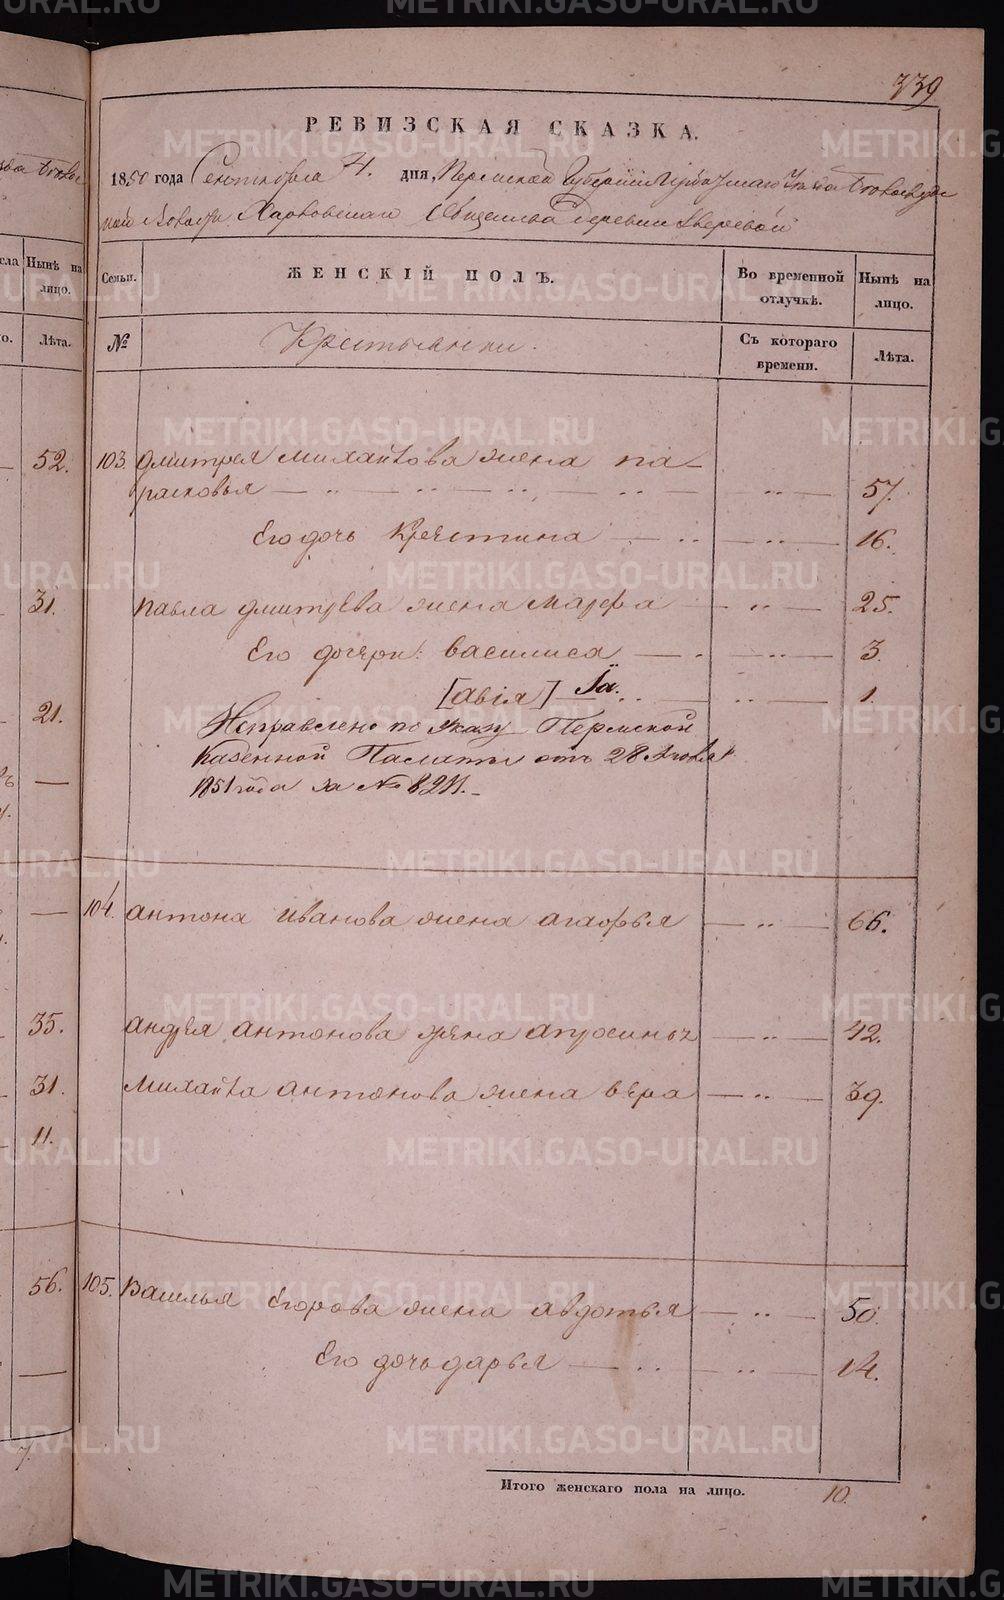 339
РЕВИЗСКАЯ СКАЗКА.
1850 года Сентября 4. дня, Пермской Губернии Уезда
Волости Харловскаго Общества Деревни Зверевой
Нынѣ на лицо.
Семьи.
ЖЕНСКІЙ ПОЛЪ.
Во временной отлучкѣ.
Нынѣ на лицо.
Лѣта.
№
Крестьянки.
Съ котораго времени.
Лѣта.
52. 103. Дмитрея Михайлова жена Па-
расковья — „ — „ — „ — 57.
Его дочь Крестина — „ — 16.
31. Павла Дмитрева жена Марфа — „ — 25.
Его дочери: Василиса — „ — 3.
[Авія] Ія. — „ — 1.
21. Исправлено по Указу Пермской
Казенной Палаты отъ 28
1851 года за №
— 104. Антона Иванова жена Агафья — „ — 66.
35. Андрея Антонова жена Апросинья — „ — 42.
31. Михайла Антонова жена Вера — „ — 39.
11.
56. 105. Василья Егорова жена Авдотья — „ — 50.
Его дочь Дарья — „ — 14.
7.
Итого женскаго пола на лицо. 10.
METRIKI.GASO-URAL.RU